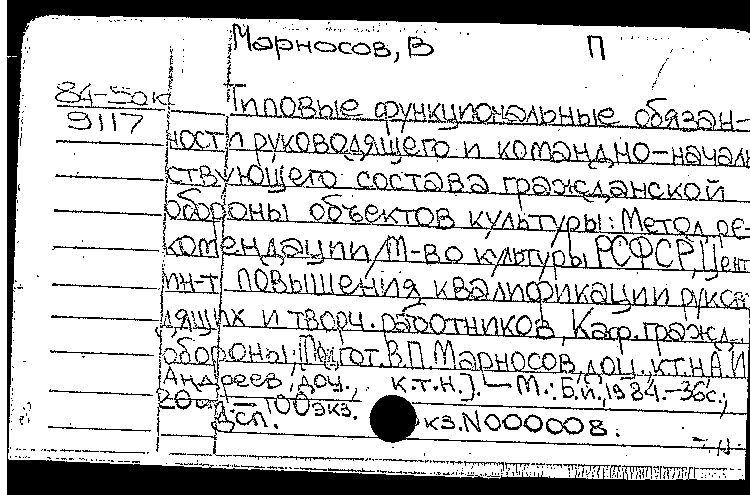 Марносов, В П
84-5ок
9117
Типовые функциональные обязан-
ности руководящего и командно-началь
ствующего состава гражданской
обороны объектов культуры: Метод. ре-
комендации/М-во культуры РСФСР, Цент
ин-т повышения квалификации руково
дящих и творч. работников, Каф. гражд.
обороны; [Подгот. В.П. Марносов, доц., к.т.н. А.И
Андреев, доц., к.т.н.]. — М.: Б.и., 1984.-36с.;
20см. — 100экз.
Дсп. кз.N000008.